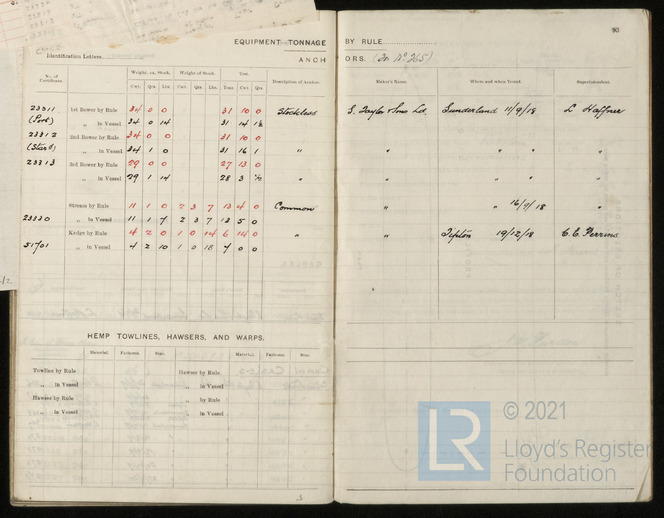 93
EQUIPMENT TONNAGE BY RULE
Identification Letters
ANCHORS. (In No 265)
No. of Certificate. Weight, ex. Stock. Weight of Stock. Test. Description of Anchor. Maker's Name. Where and when Tested. Superintendent.
Cwt. Qrs. Lbs. Cwt. Qrs. Lbs. Tons Cwt. Qrs.
23311 1st Bower by Rule 34 0 0 31 10 0 Stockless S. Taylor & Sons Ld. Sunderland 11/9/18 L Haffner
(Port) „ in Vessel 34 0 14 31 14 1½
23312 2nd Bower by Rule 34 0 0 31 10 0
(Starbd) „ in Vessel 34 1 0 31 16 1 " " " " "
23313 3rd Bower by Rule 29 0 0 27 13 0
„ in Vessel 29 1 14 28 3 " " " "
Stream by Rule 11 1 0 2 3 7 13 4 0 Common " 16/7/18
23330 „ in Vessel 11 1 7 2 3 7 13 5 0
Kedge by Rule 4 2 0 1 0 14 6 14 0 " " Tipton 19/12/18 C. E. Perrins
51701 „ in Vessel 4 2 10 1 0 18 7 0 0
HEMP TOWLINES, HAWSERS, AND WARPS.
Material. Fathoms. Size. Material. Fathoms. Size.
Towlines by Rule Hawser by Rule
„ in Vessel „ in Vessel
Hawser by Rule „ by Rule
„ in Vessel „ in Vessel
LR
© 2021
Lloyd's Register
Foundation